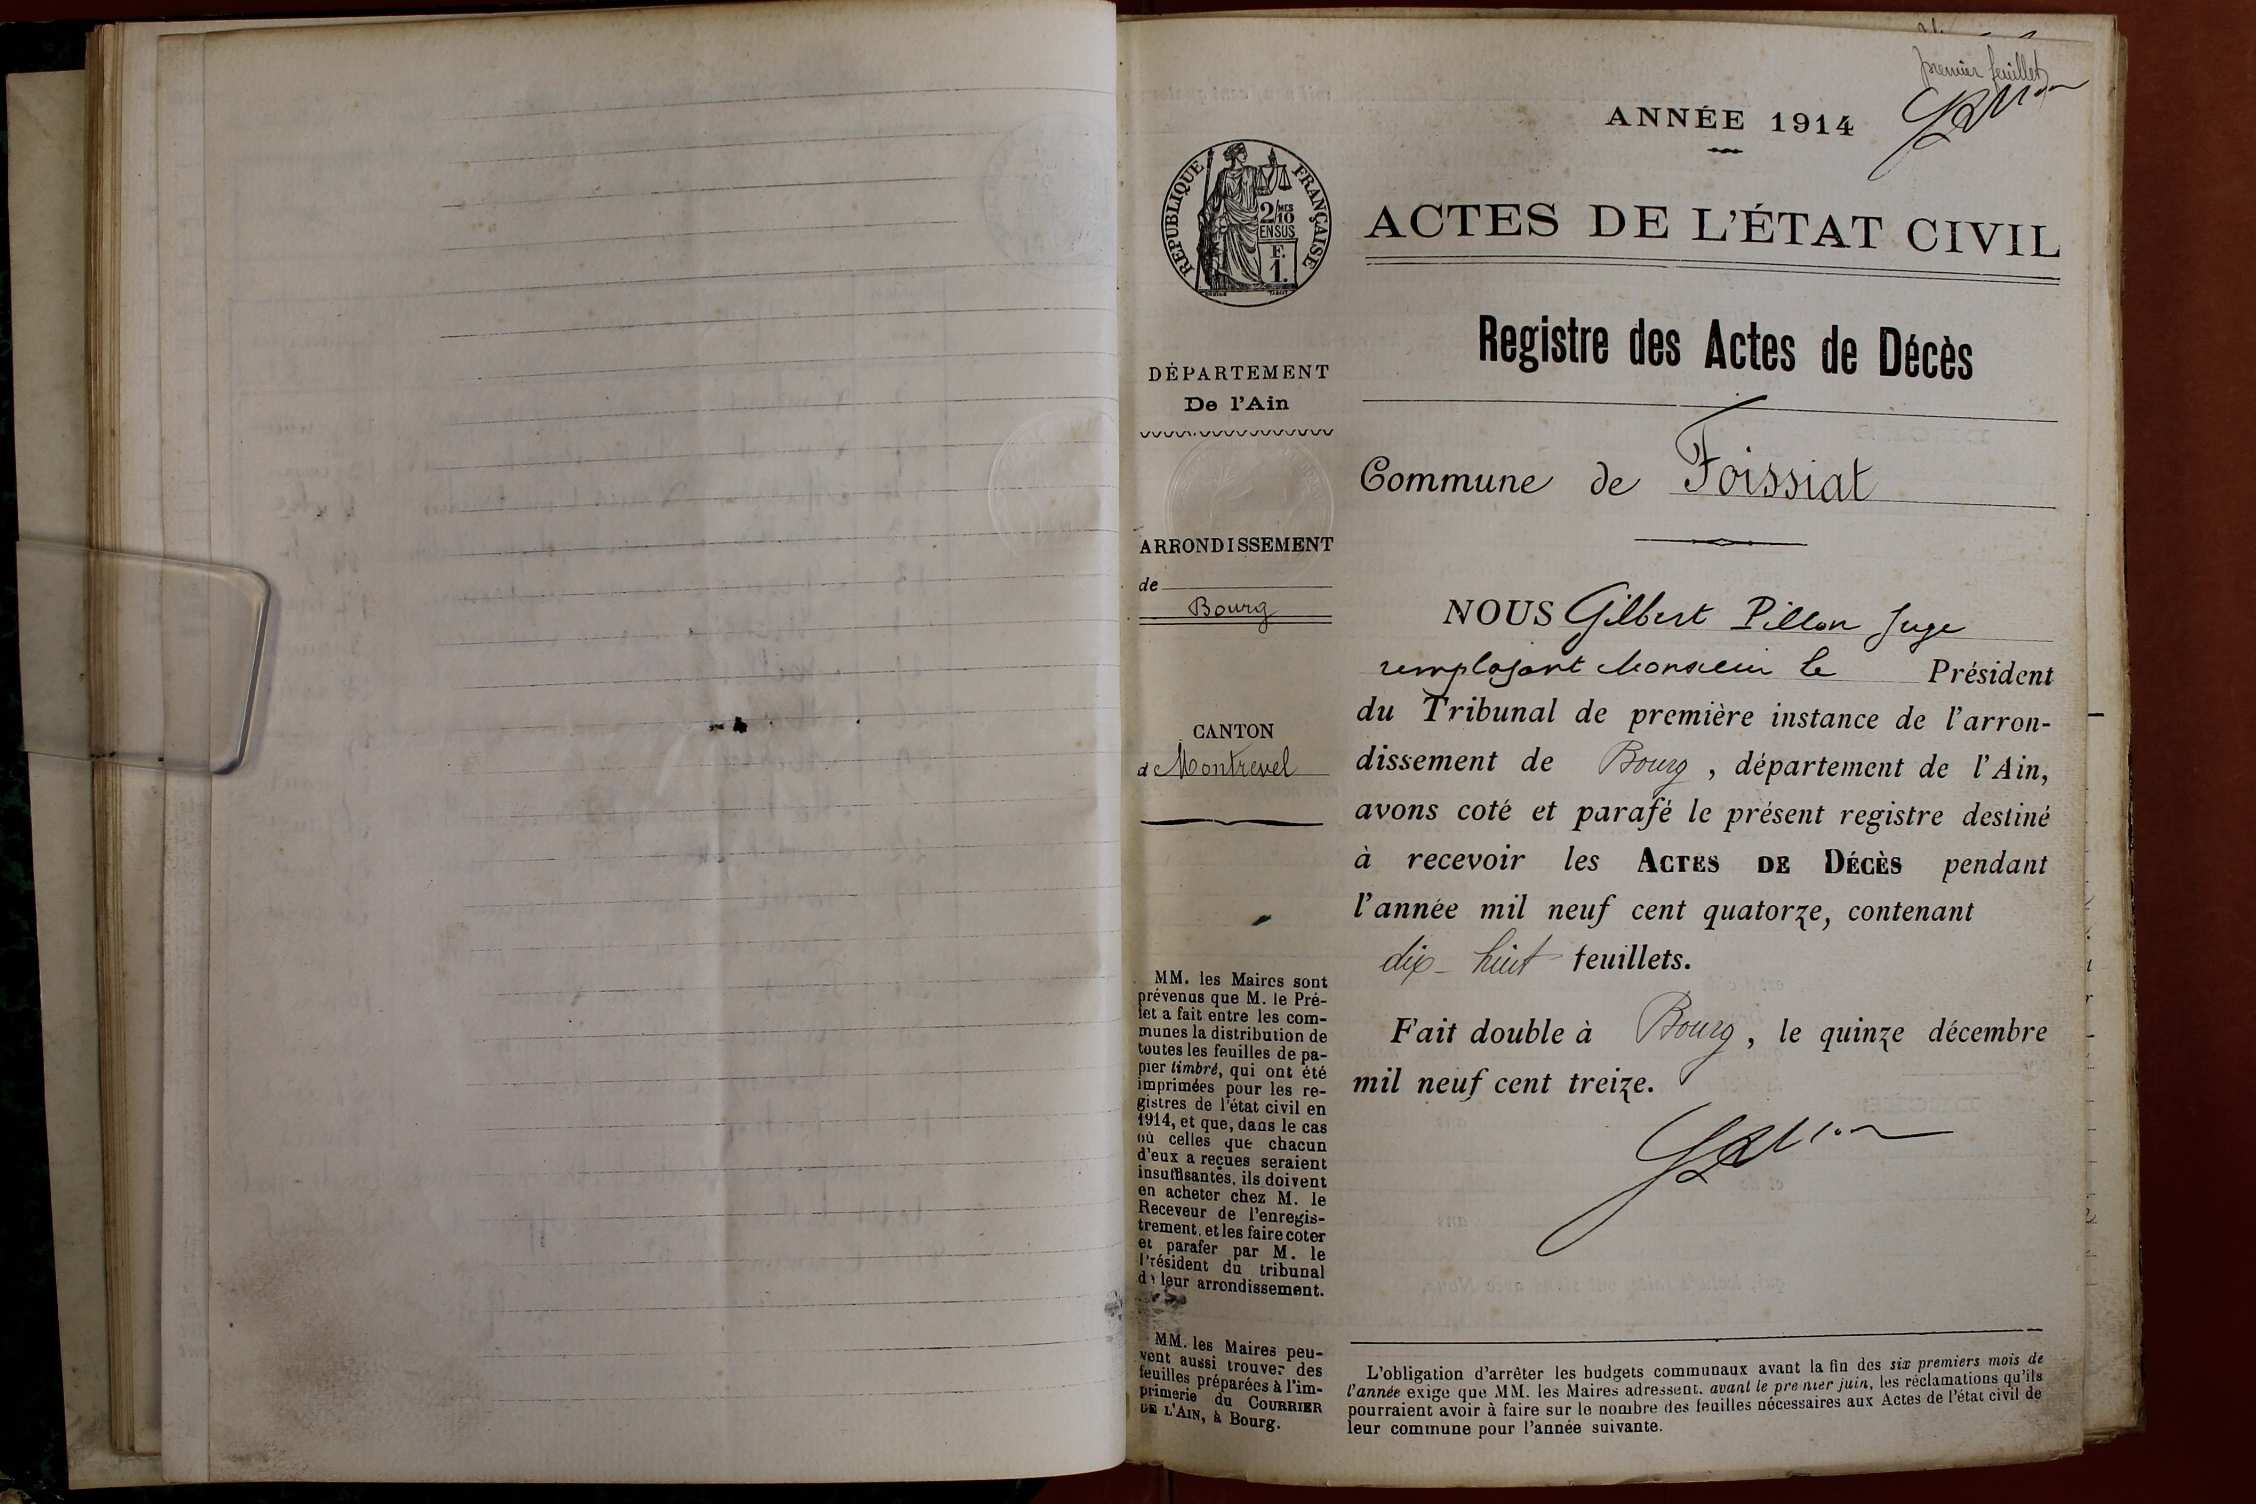 premier feuillet
ANNÉE 1914
RÉPUBLIQUE FRANÇAISE
2/MES
10
EN SUS
F.
1.
ACTES DE L'ÉTAT CIVIL
Registre des Actes de Décès
DÉPARTEMENT
De l'Ain
Commune de Foissiat
ARRONDISSEMENT
de
Bourg
CANTON
de Montrevel
NOUS Gilbert Pillon Juge
remplaçant Monsieur le Président
du Tribunal de première instance de l'arron-
dissement de Bourg, département de l'Ain,
avons coté et parafé le présent registre destiné
à recevoir les ACTES DE DÉCÈS pendant
l'année mil neuf cent quatorze, contenant
dix-huit feuillets.
Fait double à Bourg, le quinze décembre
mil neuf cent treize.
MM. les Maires sont
prévenus que M. le Pré-
fet a fait entre les com-
munes la distribution de
toutes les feuilles de pa-
pier timbré, qui ont été
imprimées pour les re-
gistres de l'état civil en
1914, et que, dans le cas
où celles que chacun
d'eux a reçues seraient
insuffisantes, ils doivent
en acheter chez M. le
Receveur de l'enregis-
trement, et les faire coter
et parafer par M. le
Président du tribunal
de leur arrondissement.
MM. les Maires peu-
vent aussi trouver des
feuilles préparées à l'im-
primerie du COURRIER
DE L'AIN, à Bourg.
L'obligation d'arrêter les budgets communaux avant la fin des six premiers mois de
l'année exige que MM. les Maires adressent, avant le premier juin, les réclamations qu'ils
pourraient avoir à faire sur le nombre des feuilles nécessaires aux Actes de l'état civil de
leur commune pour l'année suivante.